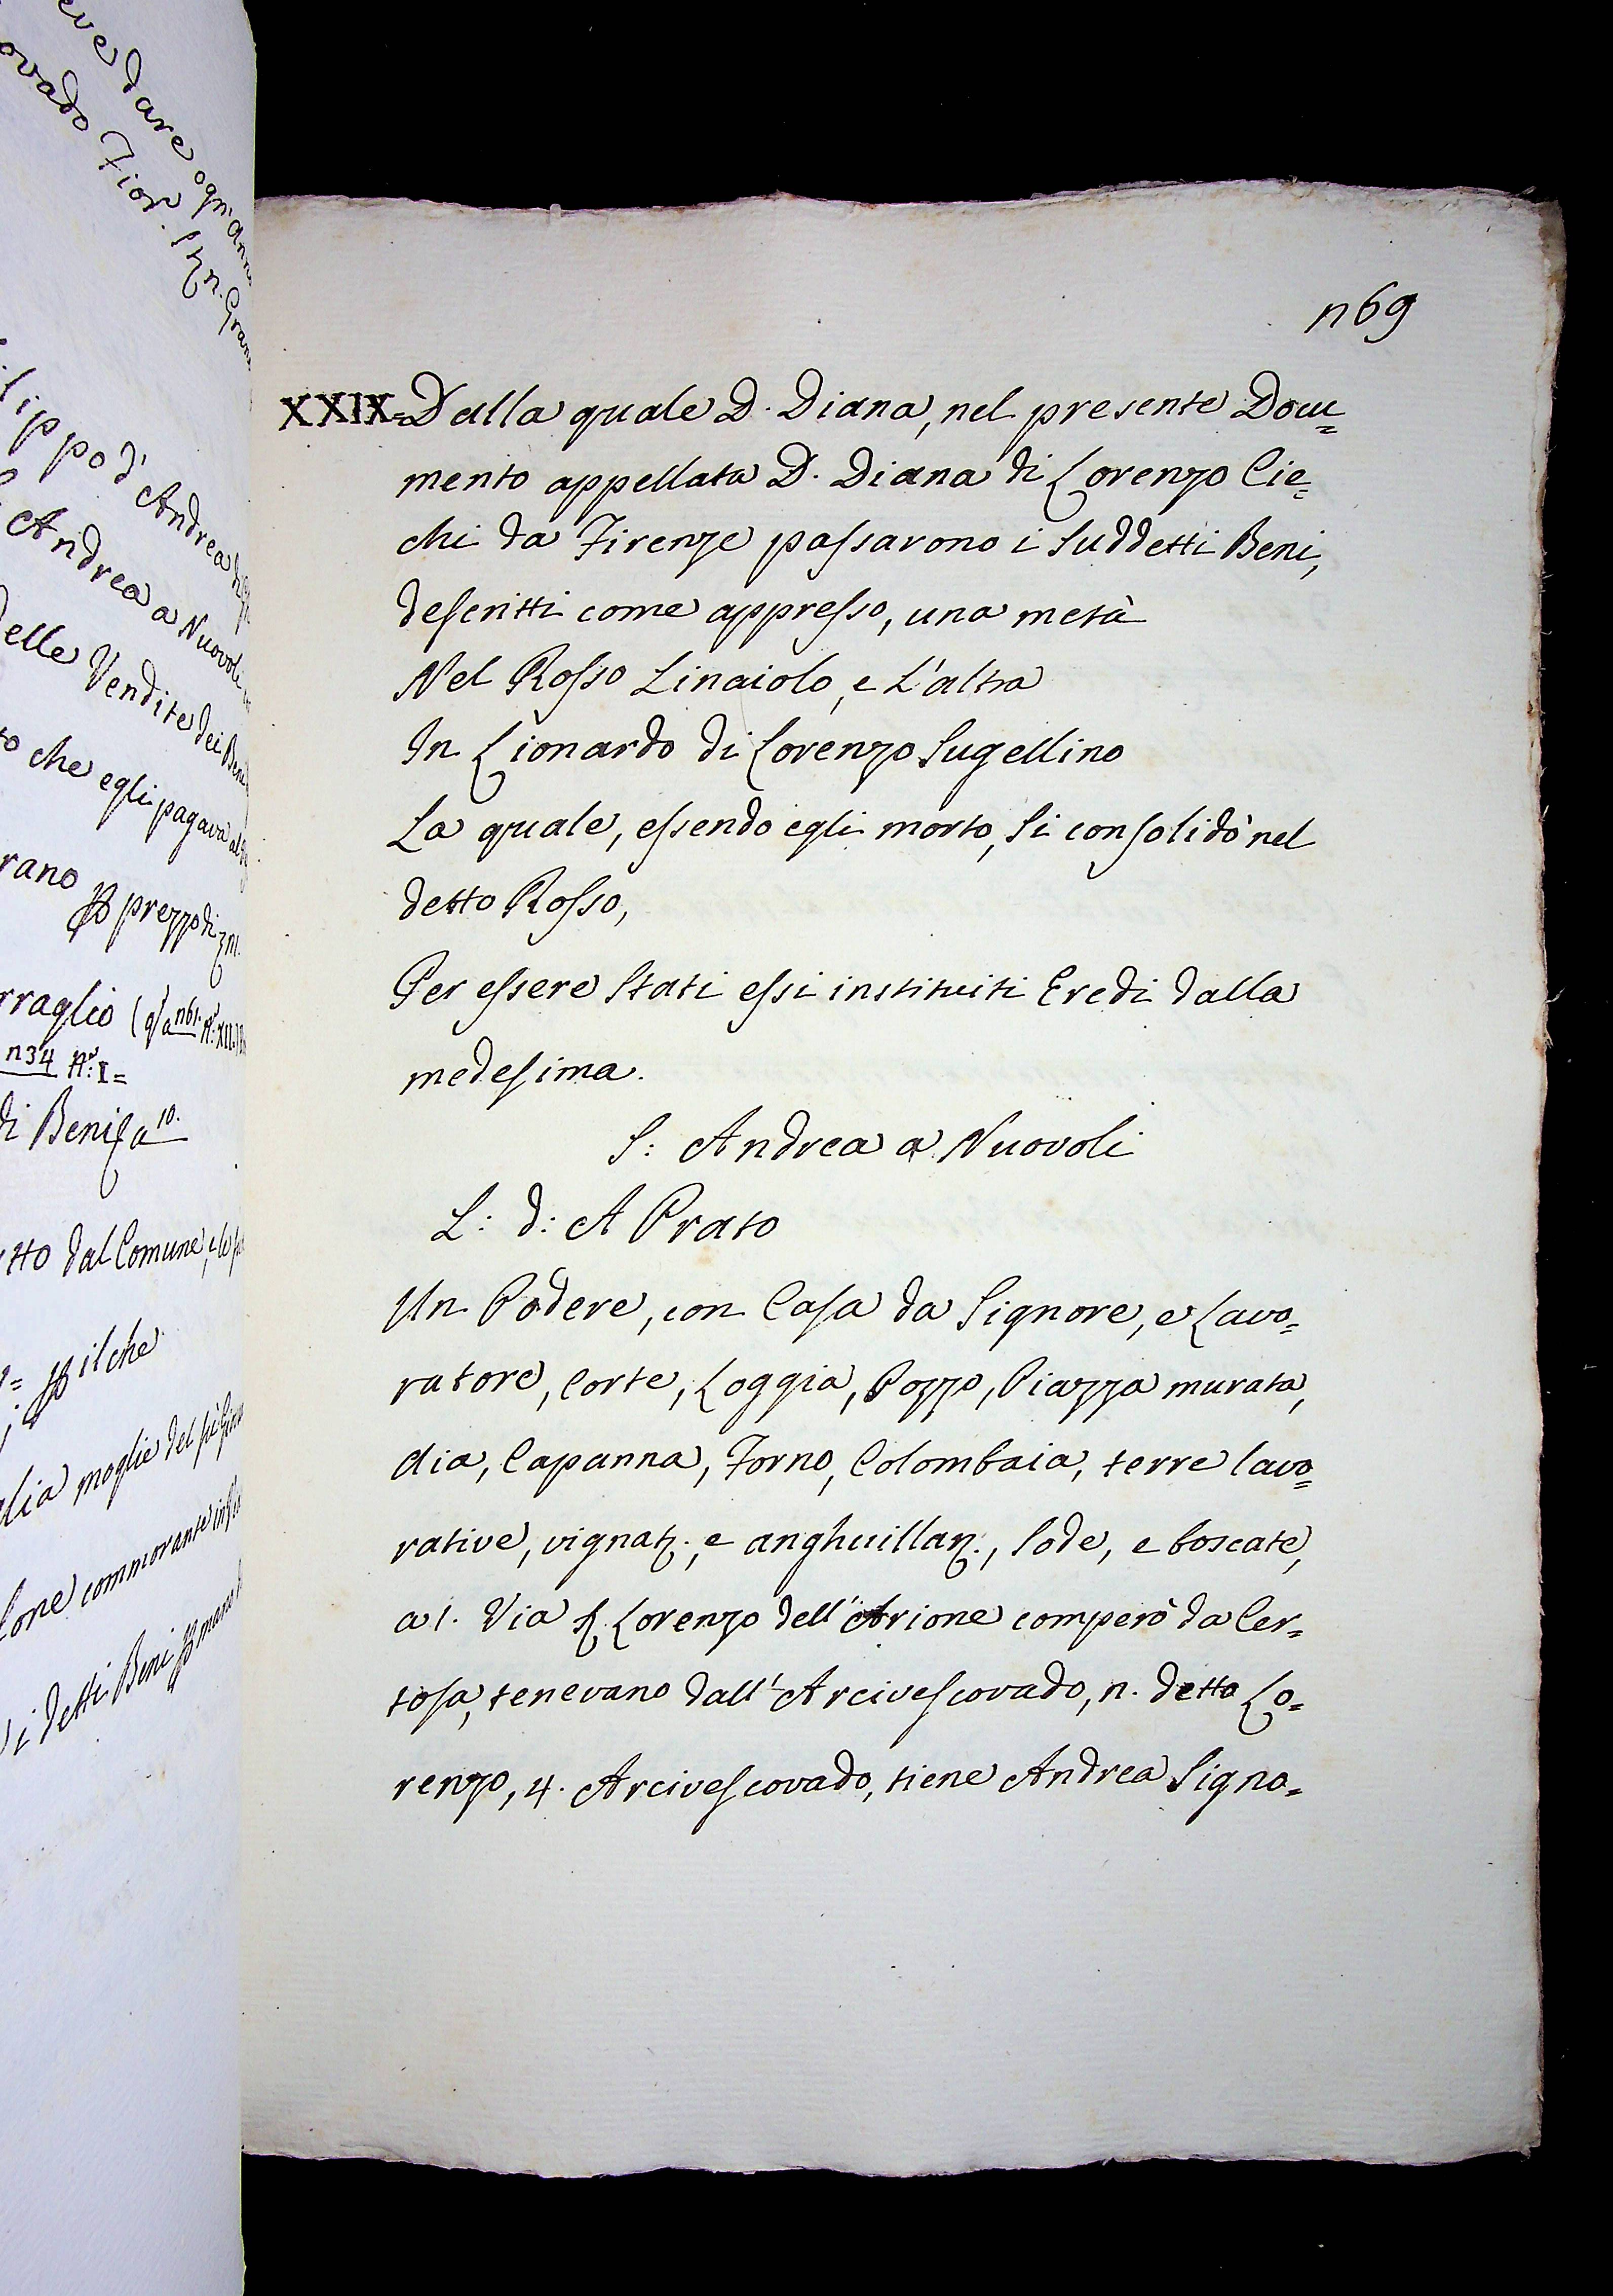 eve dare ogn'anno
ovado Fior.
ilippo d'Andrea
Andrea a Nuovoli
delle Vendite dei Beni
to che egli pagava al
rano prezzo di
rraglio
n34 I=
di Beni a 10.
tto dal Comune, e le
il che
lia moglie del
lone commorante in
i detti Beni
n69
XXIX=Dalla quale D. Diana, nel presente Docu=
mento appellata D. Diana di Lorenzo Cie=
chi da Firenze passarono i suddetti Beni,
descritti come appresso, una metà
Nel Rosso Linaiolo, e L'altra
In Lionardo di Lorenzo Sugellino
La quale, essendo egli morto, si consolidò nel
detto Rosso,
Per essere stati essi instituiti Eredi dalla
medesima.
S: Andrea a Nuovoli
L: d: A Prato
Un Podere, con Casa da Signore, e Lavo=
ratore, Corte, Loggia, Pozzo, Piazza murata,
Aia, Capanna, Forno, Colombaia, terre lavo=
rative, vignat., e anghuillar., sode, e boscate,
a 1. Via Lorenzo dell'Arione comperò da Cer=
tosa, tenevano dall'Arcivescovado, n. detto Lo=
renzo, 4. Arcivescovado, tiene Andrea Signo=